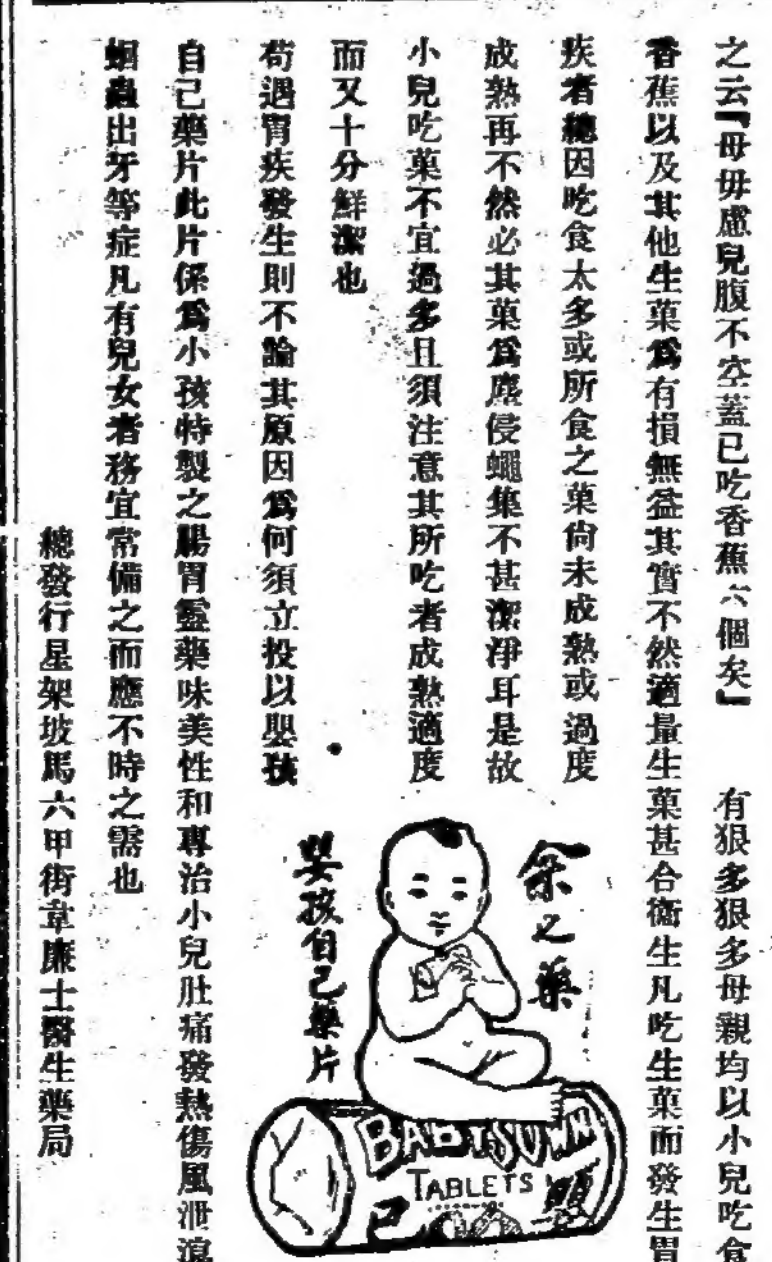 之云『母毋慮兒腹不空蓋已吃香蕉六個矣』 有狠多狠多母親均以小兒吃食
香蕉以及其他生菓爲有損無益其實不然適量生菓甚合衞生凡吃生菓而發生胃
疾者總因吃食太多或所食之菓尙未成熟或過度
成熟再不然必其菓爲塵侵蠅集不甚潔淨耳是故
小兒吃菓不宜過多且須注意其所吃者成熟適度
而又十分鮮潔也
苟遇胃疾發生則不論其原因爲何須立投以嬰孩
自己藥片此片係爲小孩特製之腸胃靈藥味美性和專治小兒肚痛發熱傷風泄瀉
蛔蟲出牙等症凡有兒女者務宜常備之而應不時之需也
總發行星架坡馬六甲街韋廉士醫生藥局
余之藥
嬰孩自己藥片
BABY'S OWN
TABLETS
己